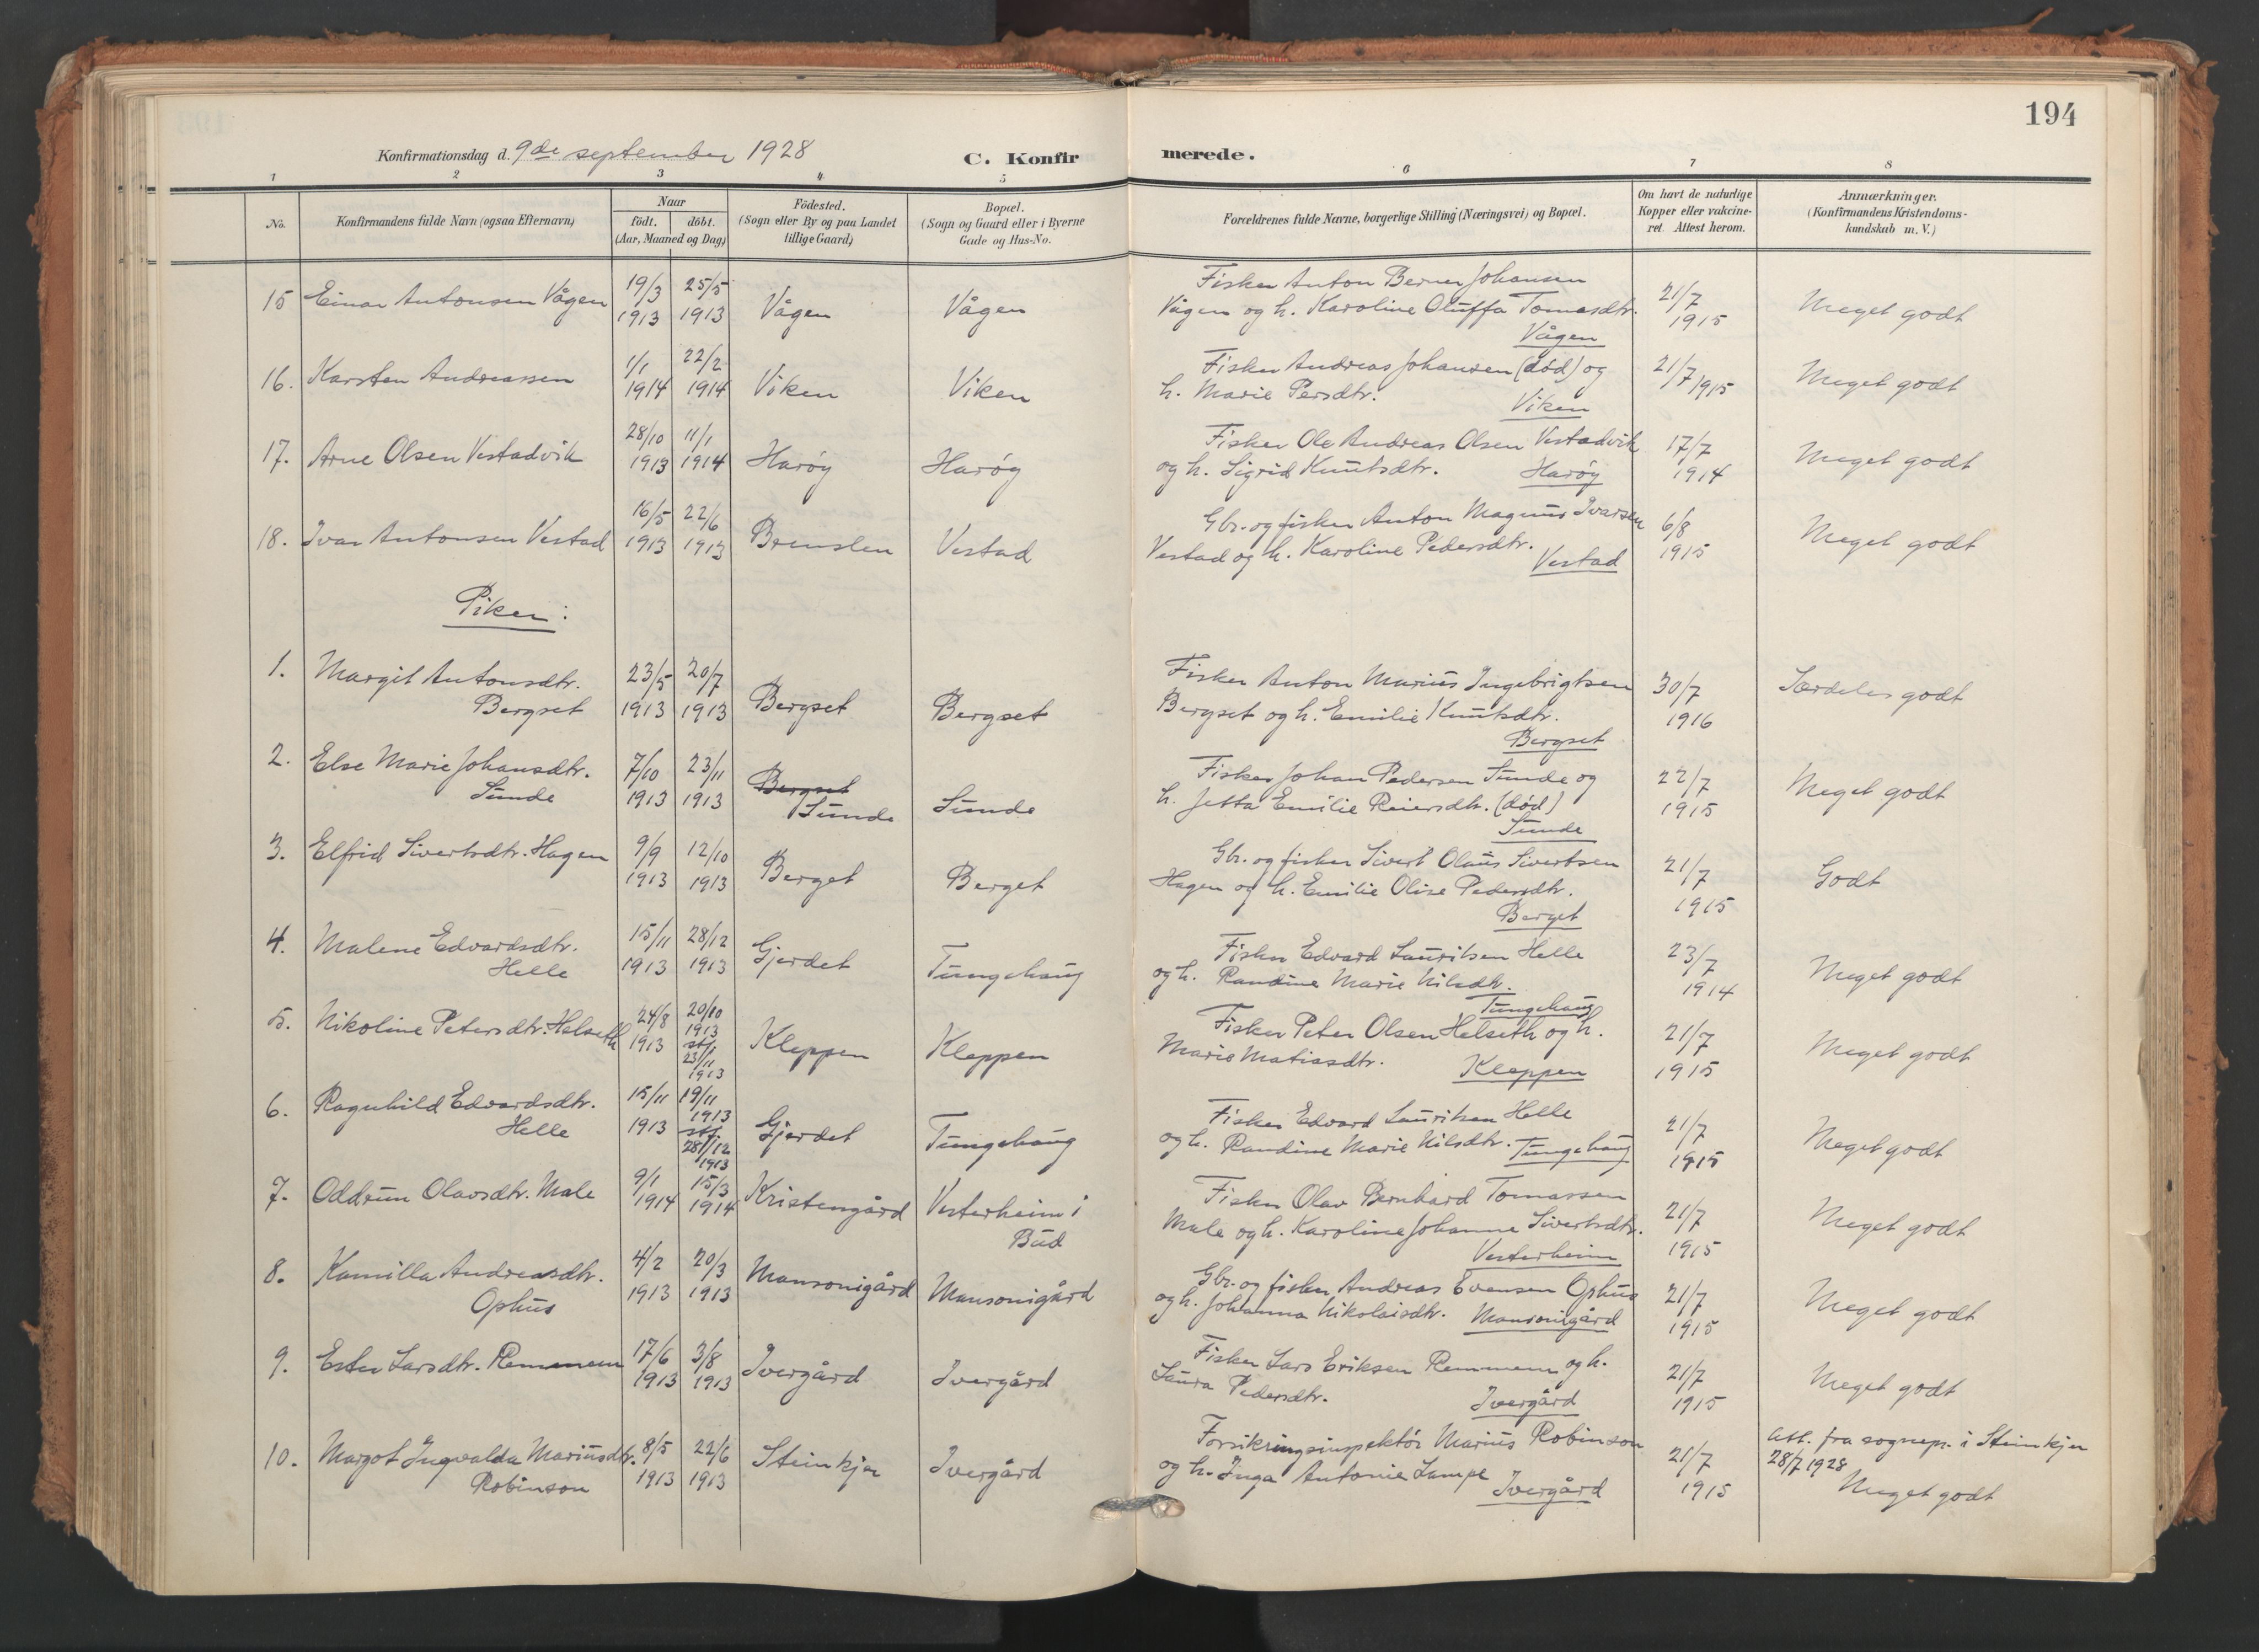 194
Konfirmationsdag d. 9de september 1928
C. Konfirmerede.
1 2 3 4 5 6 7 8
No.
Konfirmandens fulde Navn (ogsaa Efternavn)
Naar
født. døbt.
(Aar, Maaned og Dag)
Födested.
(Sogn eller By og paa Landet
tillige Gaard)
Bopæl.
(Sogn og Gaard eller i Byerne
Gade og Hus-No.
Forældrenes fulde Navne, borgerlige Stilling (Næringsvei) og Bopæl.
Om havt de naturlige
Kopper eller vakcine-
ret. Attest herom.
Anmærkninger.
(Konfirmandens Kristendoms-
kundskab m. V.)
15 Einar Antonsen Vågen 19/3 1913 25/5 1913 Vågen Vågen
Fisker Anton Berner Johansen
Vågen og h. Karoline Oluffa Tomasdtr.
Vågen
21/7 1915 Meget godt
16. Karsten Andreassen 1/1 1914 22/2 1914 Viken Viken
Fisker Andreas Johansen (død) og
h. Marie Persdtr.
Viken
21/7 1915 Meget godt
17. Arne Olsen Vestadvik 28/10 1913 11/1 1914 Harøy Harøy
Fisker Ole Andreas Olsen Vestadvik
og h. Sigrid Knutsdtr. Harøy
17/7 1914 Meget godt
18. Ivar Antonsen Vestad 16/5 1913 22/6 1913 Bremslen Vestad
Gbr. og fisker Anton Magnus Ivarsen
Vestad og h. Karoline Pedersdtr.
Vestad
6/8 1915 Meget godt
Piker:
1. Margit Antonsdtr.
Bergset
23/5 1913 20/7 1913 Bergset Bergset
Fisker Anton Marius Ingebrigtsen
Bergset og h. Emilie Knutsdtr.
Bergset
30/7 1916 Særdeles godt
2. Else Marie Johansdtr.
Sunde
7/10 1913 23/11 1913 Bergset
Sunde Sunde
Fisker Johan Pedersen Sunde og
h. Jetta Emilie Reiersdtr. (død)
Sunde
22/7 1915 Meget godt
3. Elfrid Sivertsdtr. Hagen 9/9 1913 12/10 1913 Berget Berget
Gbr. og fisker Sivert Olaus Sivertsen
Hagen og h. Emilie Olise Pedersdtr.
Berget
21/7 1915 Godt
4. Malene Edvardsdtr.
Helle
15/11 1913 28/12 1913 Gjerdet Tungehaug
Fisker Edvard Lauritsen Helle
og h. Randine Marie Nilsdtr.
Tungehaug
23/7 1914 Meget godt
5. Nikoline Petersdtr. Helseth 24/8 1913 20/10 1913 stf. 23/11 1913 Kleppen Kleppen
Fisker Peter Olsen Helseth og h.
Marie Matiasdtr. Kleppen
21/7 1915 Meget godt
6. Ragnhild Edvardsdtr.
Helle
15/11 1913 19/11 1913 stf. 28/12 1913 Gjerdet Tungehaug
Fisker Edvard Lauritsen Helle
og h. Randine Marie Nilsdtr. Tungehaug
21/7 1915 Meget godt
7. Oddrun Olavsdtr. Male 9/1 1914 15/3 1914 Kristengård Vesterheim i
Bud
Fisker Olav Bernhard Tomassen
Male og h. Karoline Johanne Sivertsdtr.
Vesterheim
21/7 1915 Meget godt
8. Kamilla Andreasdtr.
Ophus
4/2 1913 20/3 1913 Mansonigård Mansonigård
Gbr. og fisker Andreas Evensen Ophus
og h. Johanna Nikolaisdtr. Mansonigård
21/7 1915 Meget godt
9. Ester Larsdtr. Remmem 17/6 1913 3/8 1913 Ivergård Ivergård
Fisker Lars Eriksen Remmem og h.
Laura Pedersdtr. Ivergård
21/7 1915 Meget godt
10. Margot Ingvalda Mariusdtr.
Robinson
8/5 1913 22/6 1913 Steinkjer Ivergård
Forsikringsinspektør Marius Robinson
og h. Inga Antonie Lampe
Ivergård
21/7 1915
Att. fra sognepr. i Steinkjer
28/7 1928
Meget godt